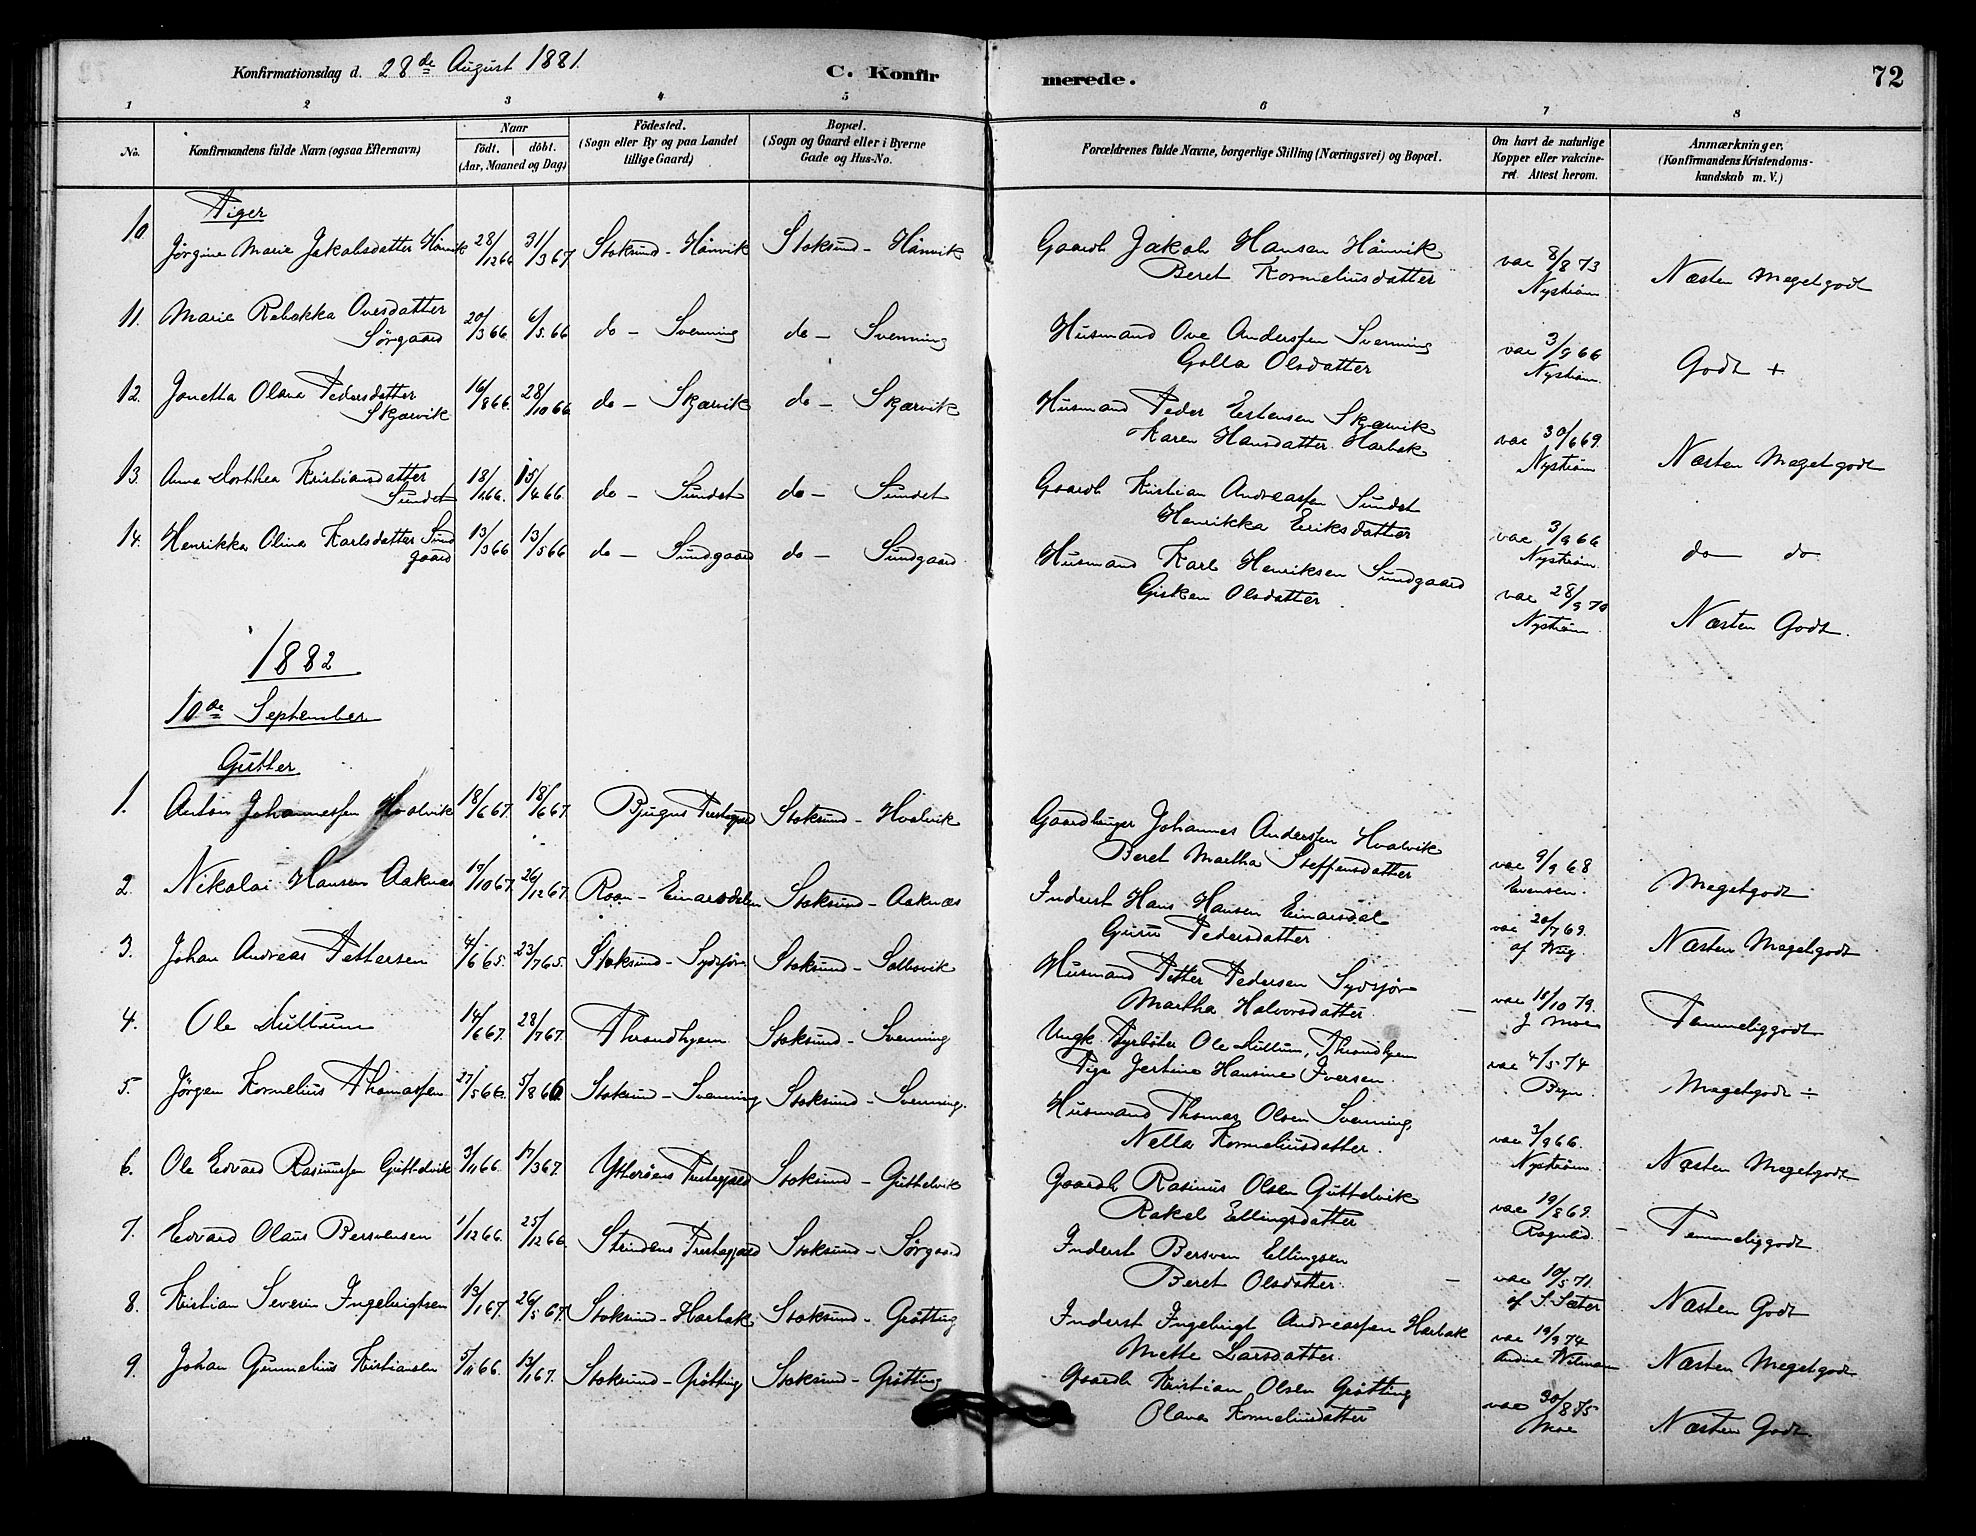 Konfirmationsdag d. 28de August 1881.
C. Konfirmerede.
72
1 2 3 4 5 6 7 8
No.
Konfirmandens fulde Navn (ogsaa Efternavn)
Naar
födt. döbt.
(Aar, Maaned og Dag)
Födested.
(Sogn eller By og paa Landet
tillige Gaard)
Bopæl.
(Sogn og Gaard eller i Byerne
Gade og Hus-No.
Forældrenes fulde Navne, borgerlige Stilling (Næringsvei) og Bopæl.
Om havt de naturlige
Kopper eller vakcine-
ret. Attest herom.
Anmærkninger,
(Konfirmandens Kristendoms-
kundskab m. V.)
Piger
10 Jørgine Marie Jakobsdatter Hånvik 28/12 66 31/3 67 Stoksund - Hånvik Stoksund - Hånvik Gaardb Jakob Hansen Hånvik
Beret Korneliusdatter vac 8/8 73
Nystrøm Næsten Megetgodt
11. Marie Rebekka Ovesdatter
Sørgaard 20/3 66. 6/5 66 do - Svenning do - Svenning Husmand Ove Anderssen Svenning
Golla Olsdatter vac 3/9 66
Nystrøm Godt +
12. Janetta Olava Pedersdatter
Skjærvik 16/8 66. 28/10 66 do - Skjærvik do - Skjærvik Husmand Peder Estensen Skjærvik
Karen Hansdatter Harbak vac 30/6 69.
Nystrøm Næsten Megetgodt
13. Anna Dorthea Kristiansdatter
Sundet 18/1 66. 15/4 66. do - Sundet do - Sundet Gaardb Kristian Andreassen Sundet
Henrikka Eriksdatter vac 3/9 66
Nystrøm do do
14. Henrikka Olina Karlsdatter Sund
gaard 13/3 66 13/5 66 do - Sundgaard do - Sundgaard Husmand Karl Henriksen Sundgaard
Gisken Olsdatter vac 28/9 70
Nystrøm Næsten Godt.
1882
10de September
Gutter
1. Anton Johannessen Hvalvik 18/6 67. 18/6 67. Bjugns Prestegjeld Stoksund - Hvalvik Gaardbruger Johannes Anderssen Hvalvik
Beret Martha Steffensdatter vac 9/9 68
Evensen. Megetgodt
2. Nikolai Hansen Aaknæs 17/10 67. 26/12 67. Roan - Einarsdalen Stoksund - Aaknæs Inderst Hans Hansen Einarsdal
Guru Pedersdatter vac 20/7 69.
af Wug. Næsten Megetgodt
3. Johan Andreas Pettersen 4/6 65. 23/7 65. Stoksund - Sydsjør Stoksund - Husmand Petter Pedersen Sydsjør
Martha Halvorsdatter. - vac 18/10 79.
J Moe Temmeliggodt
4. Ole Dullum 14/6 67. 28/7 67. Throndhjem Stoksund - Svenning Ungk. Fyrbøter Ole Dullum, Throndhjem
Pige Jertine Hansine Iversen. vac 4/5 74
Bryn. Megetgodt ÷
5. Jørgen Kornelius Thomassen 27/5 66. 5/8 66 Stoksund - Svenning Stoksund - Svenning. Husmand Thomas Olsen Svenning,
Nella Korneliusdatter. vac 3/9 66.
Nystrøm. Næsten Megetgodt
6. Ole Edvard Rasmussen Guttelvik 3/11 66. 17/3 67. Ytterøens Prestegjeld Stoksund - Guttelvik Gaardb Rasmus Olsen Guttelvik
Rakel Ellingsdatter vac 19/8 69.
Rognald. - Temmeliggodt
7. Edvard Olaus Bersvensen 1/12 66. 25/12 66. Strindens Prestegjeld Stoksund - Sørgaard Inderst Bersven Ellingsen
Beret Olsdatter. - vac 10/5 71.
af S. Sæter Næsten Godt
8. Kristian Severin Ingebrigtsen 13/1 67. 26/5 67. Stoksund - Harbak Stoksund - Grøtting Inderst Ingebrigt Andreassen Harbak
Mette Larsdatter. vac 19/9 74
Andine Næsten Megetgodt
9. Johan Gunnelius Kristiansen 5/11 66. 13/1 67. Stoksund - Grøtting Stoksund - Grøtting Gaardb Kristian Olsen Grøtting
Olava Korneliusdatter vac 30/8 75
Moe Næsten Godt.